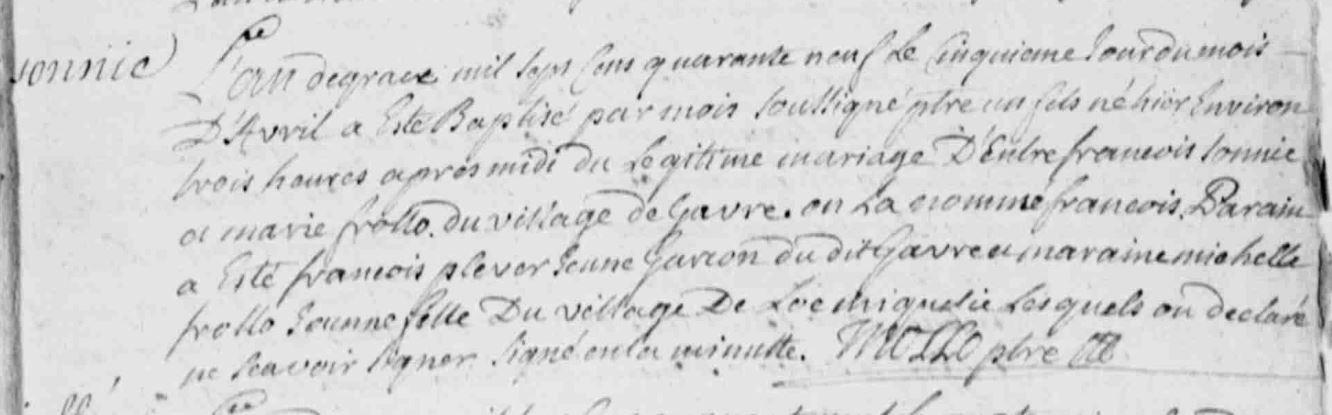 sonnic
L'an de grace mil sept Cens quarante neuf Le Cinquieme Jour du mois
D'Avril a Esté Baptisé par mois soussigné ptre un fils né hier Environ
trois heures apres midi du Legitime mariage D'Entre francois sonnic
et marie frollo. du village de Gavre. on La nommé francois. Parain
a Esté francois plever Jeune Garcon du dit Gavre et maraine michelle
frollo Jeunne fille Du village De Locmiquelic Lesquels on declaré
ne scavoir signer signé en la minutte. ptre